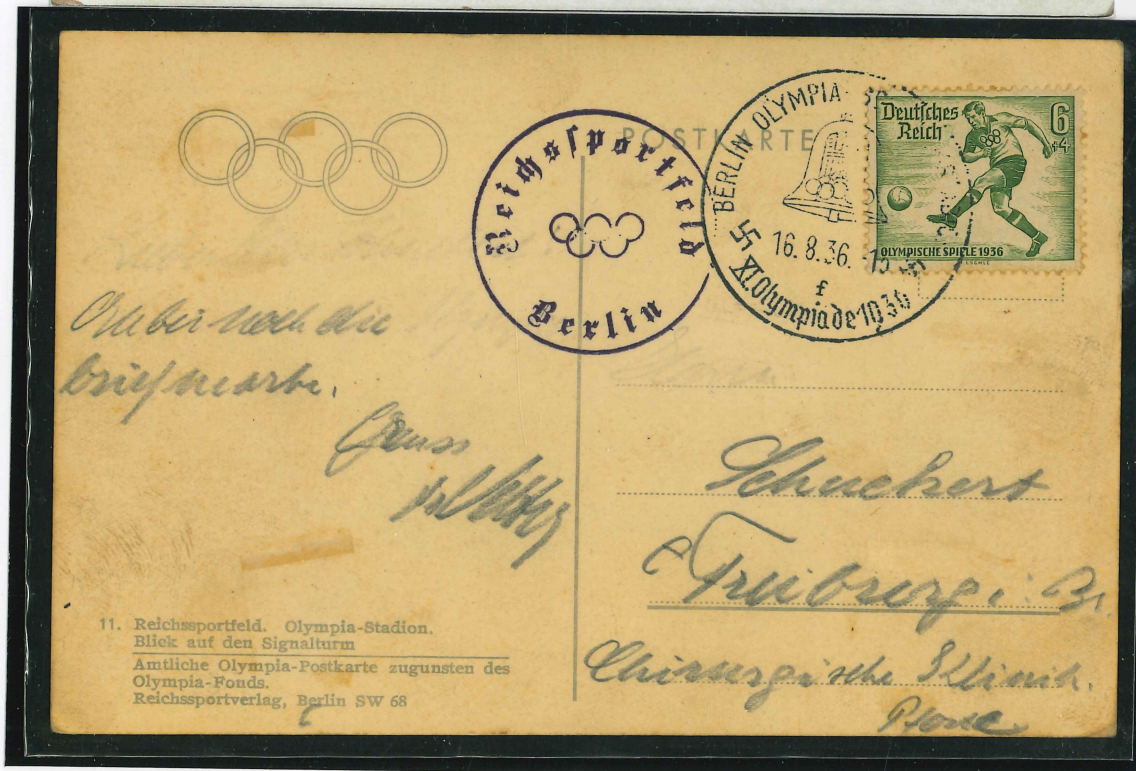 POSTKARTE
Reichssportfeld
Berlin
BERLIN OLYMPIA-
16.8.36.-15
f
XI.Olympiade 1936
Deutsches
Reich
6
+4
OLYMPISCHE SPIELE 1936
noch die
Briefmarke.
Gruss
Schuckert
Freiburg i. Br.
Chirurgische Klinik.
11. Reichssportfeld. Olympia-Stadion.
Blick auf den Signalturm
Amtliche Olympia-Postkarte zugunsten des
Olympia-Fonds.
Reichssportverlag, Berlin SW 68